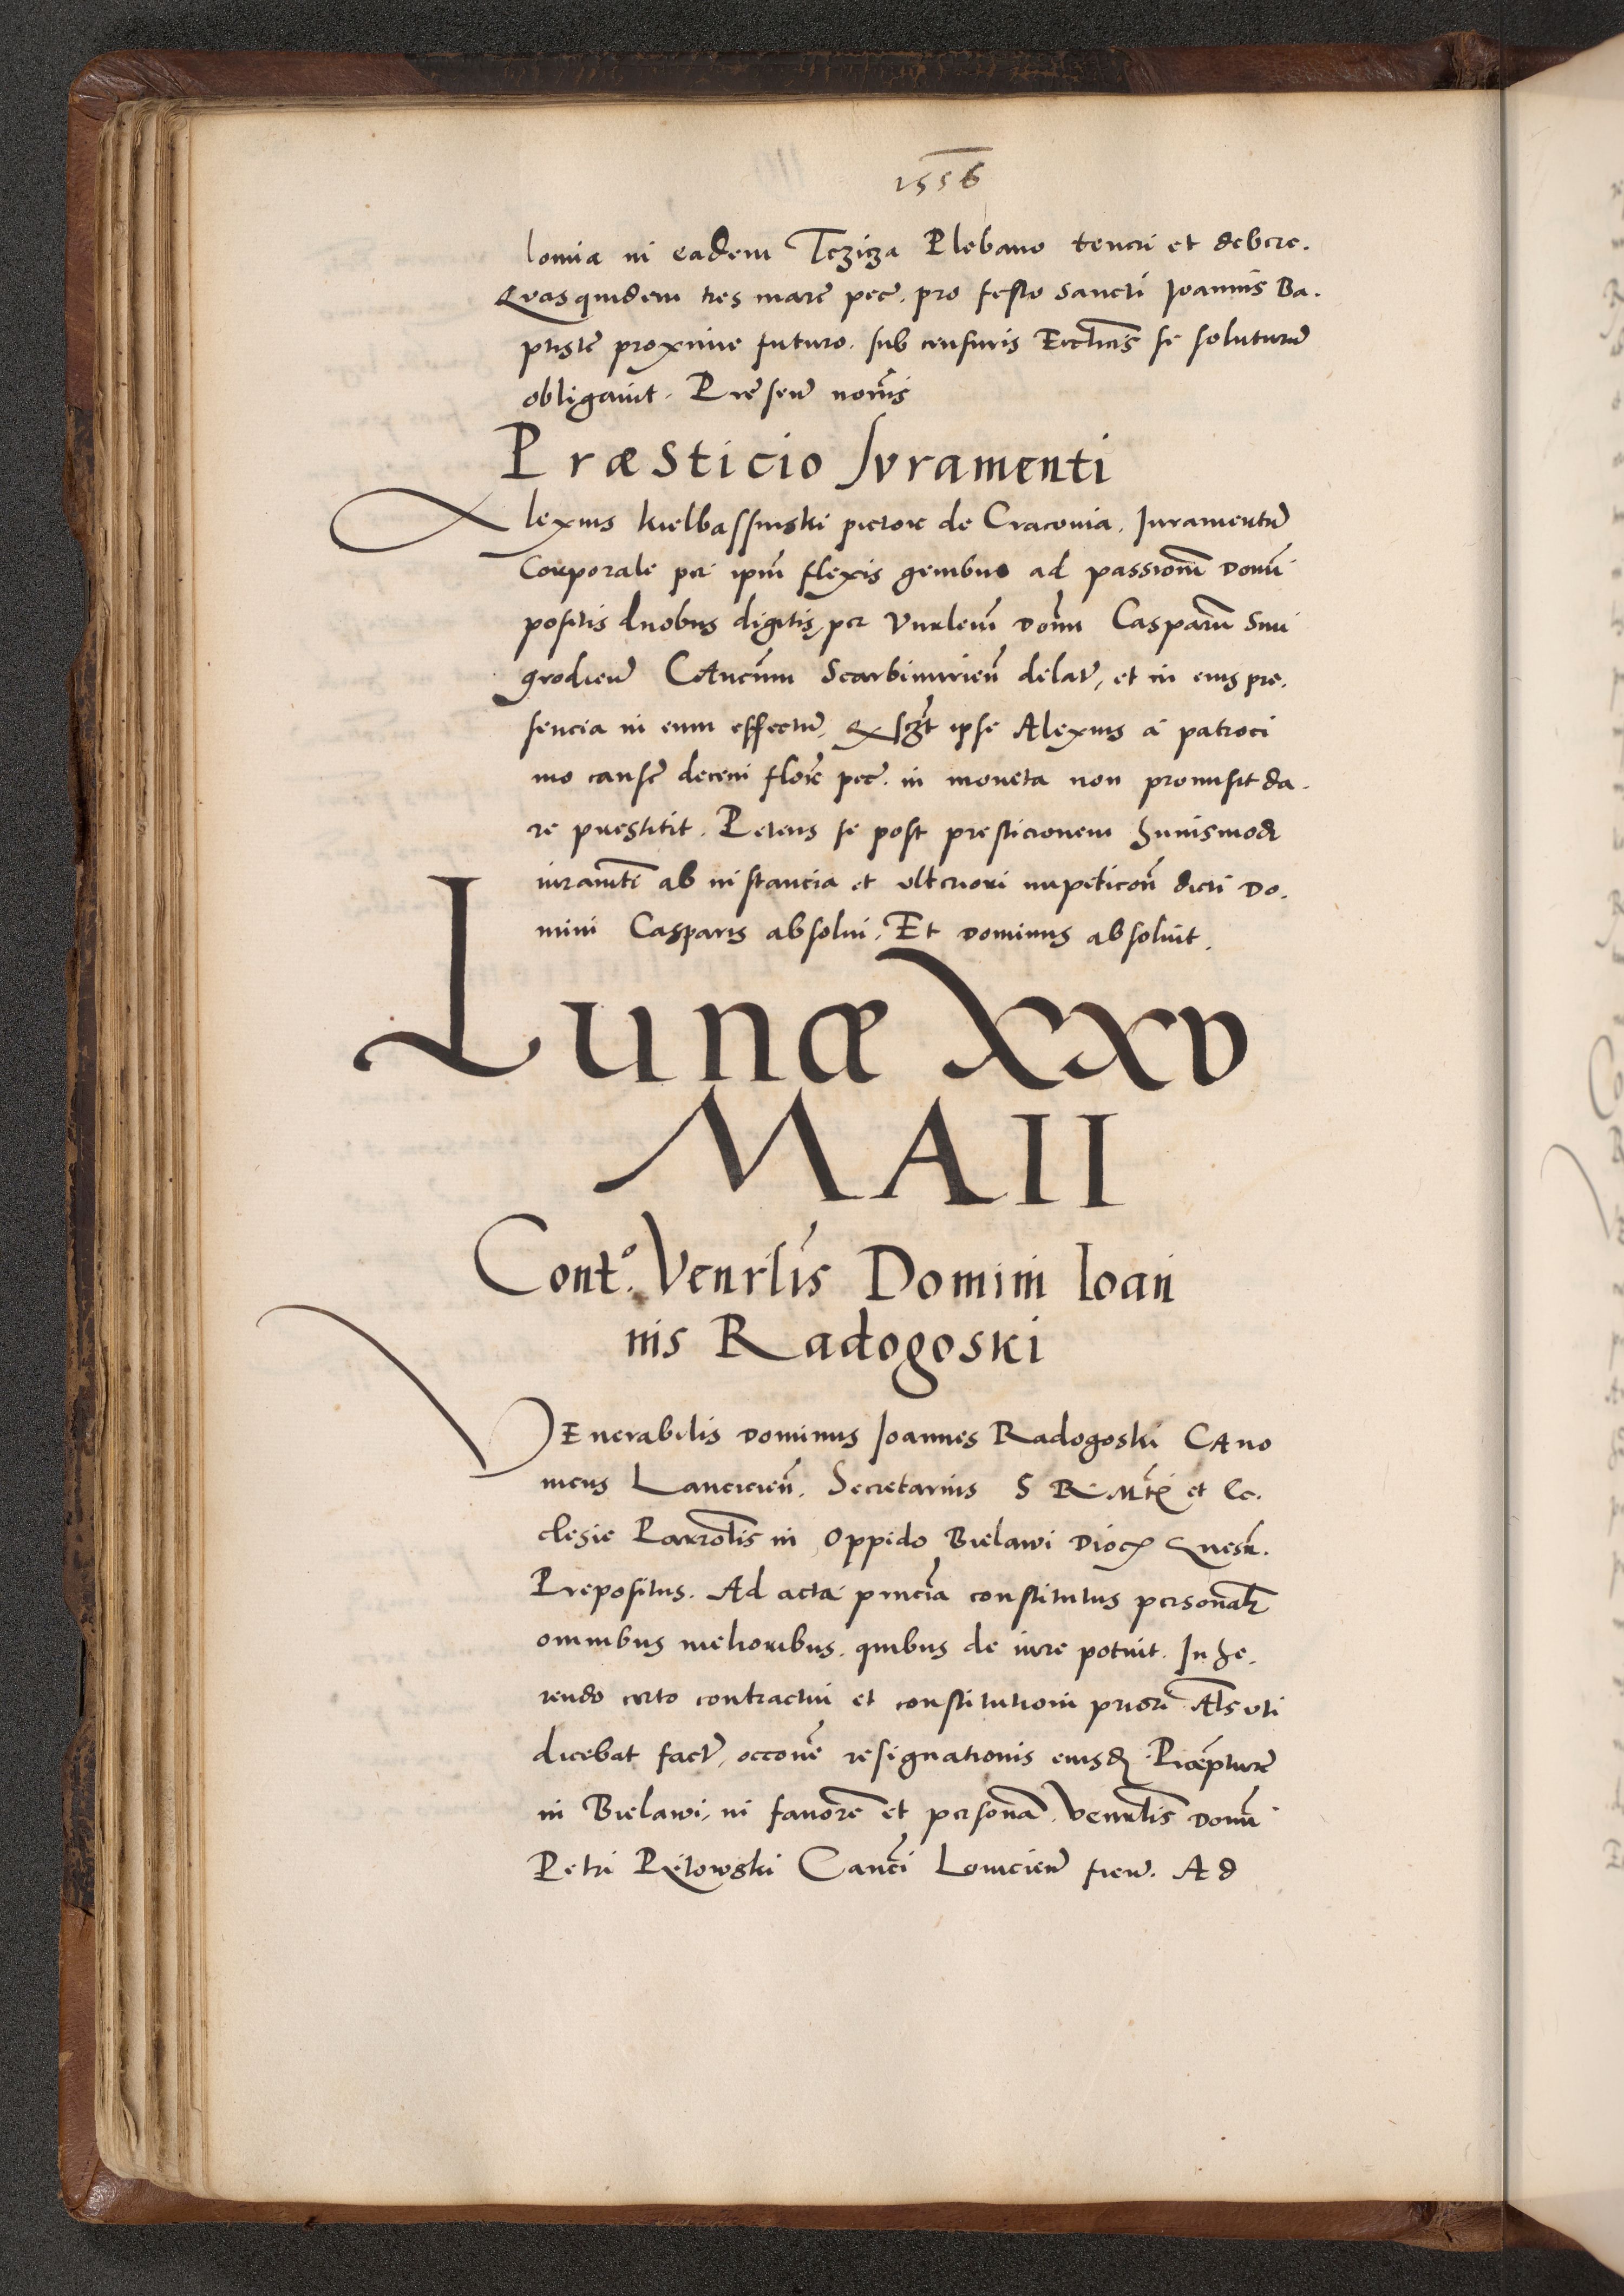 1556
lonia in eadem Tczicza Plebano teneri et debere.
Quasquidem tres marc̄ pec̄. pro festo Sancti Joannis Ba.
ptistȩ proxime futuro. sub censuris Ecc̄licis se soluturū
obligauit. Presen̄ nōīs
Præsticio Ivramenti
Alexius kielbassinski pictor de Cracouia. Iuramentū
Corporale per ipm̄ flexis genibus ad passionē Domī
positis duobus digitis, per Vn̄rlem̄ Dom̄ Casparū Sni
grodien̄ CAnc̄um Scarbimirien̄ delatū, et in eius pre.
sencia in eum effectū, Q scz̄t ipse Alexius a patroci
nio causȩ decem flore pec̄. in moneta non promisit da.
re prestitit. Petens se post presticionem huiusmodi
iuramt̄i ab instancia et vlteriori impeticōn̄ dicti Do.
mini Casparis absolui. Et Dominus absoluit.
Lunæ XXV
MAII
Cont.º Venrl̄is Domini Ioan
nis Radogoski
VEnerabilis Dominus Joannes Radogoski CAno
nicus Lancicien̄. Secretarius S R Mt̄ꝭ et Ec.
clesie Parrōlis in Oppido Bielawi Dioc̄ Gnesn̄.
Prepositus. Ad acta pn̄cia constitutus personalr̄
omnibus melioribus. quibus de iure potuit. Inhe.
rendo certo contractui et constitutioni priori Al̄s vti
dicebat factȩ, occōne resignationis eiusd̄ Præp̄turȩ
in Bielawi, in fauorē et personā. Venrl̄is Domī
Petri Pętowski Canc̄i Louicien̄ fien̄. Ad